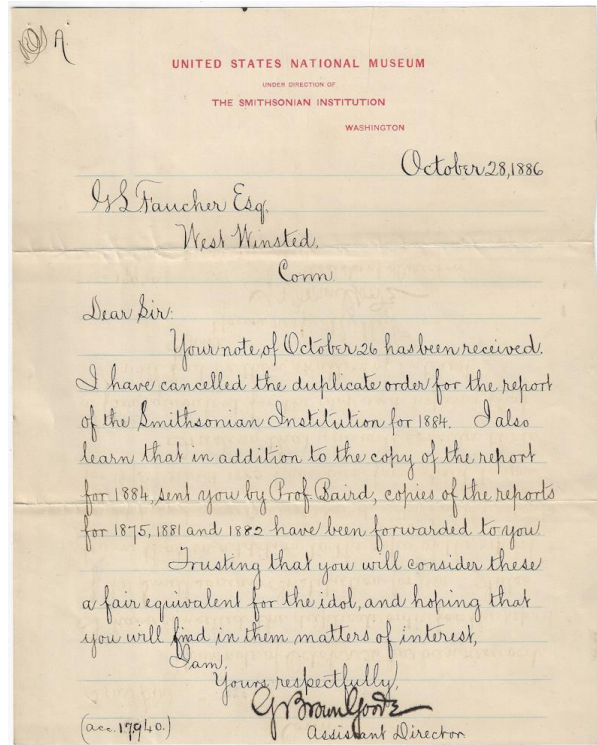 A.
UNITED STATES NATIONAL MUSEUM
UNDER DIRECTION OF
THE SMITHSONIAN INSTITUTION
WASHINGTON
October 28, 1886
G L Faucher Esq.
West Winsted,
Conn
Dear Sir:
Your note of October 26 has been received.
I have cancelled the duplicate order for the report
of the Smithsonian Institution for 1884. I also
learn that in addition to the copy of the report
for 1884, sent you by Prof. Baird, copies of the reports
for 1875, 1881 and 1882 have been forwarded to you
Trusting that you will consider these
a fair equivalent for the idol, and hoping that
you will find in them matters of interest,
I am,
Yours respectfully,
G Brown Goode
Assistant Director
(acc. 17940.)